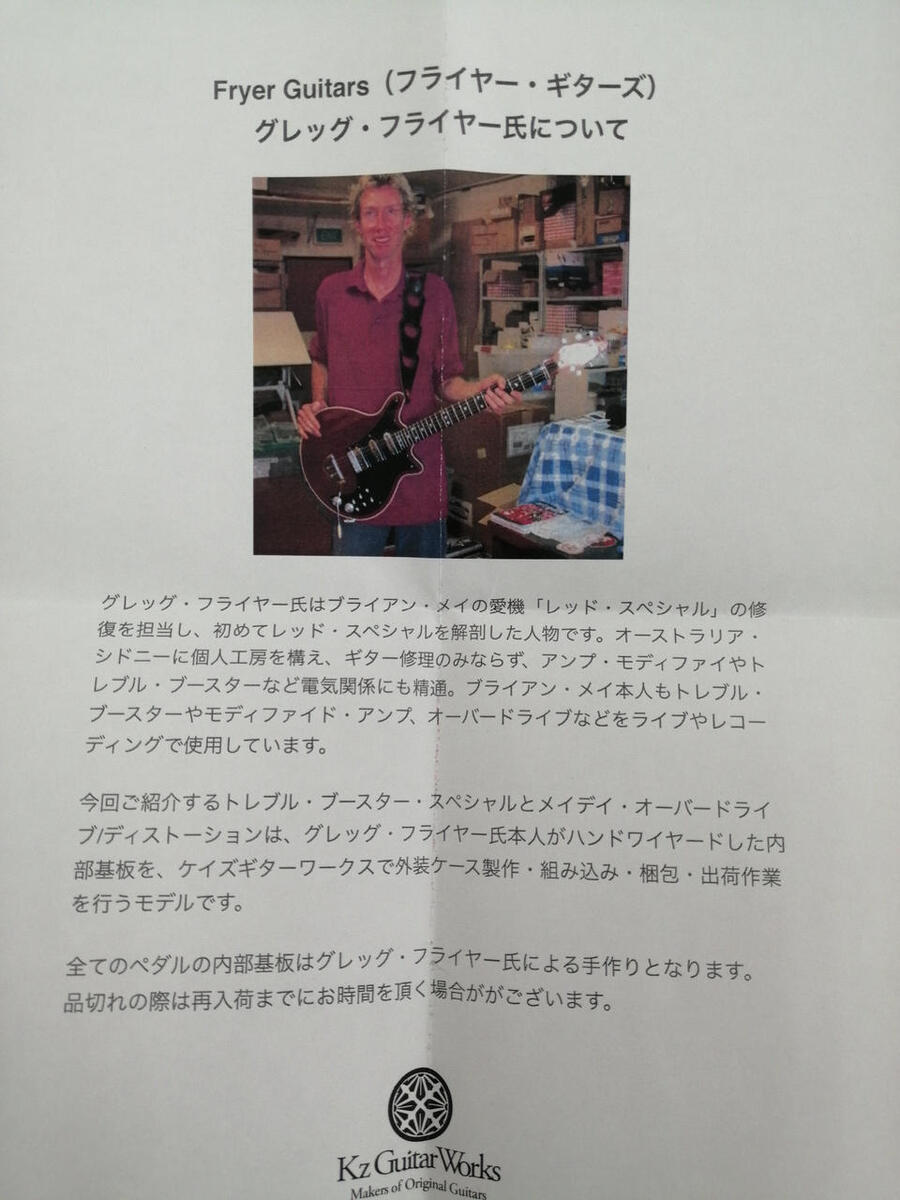 Fryer Guitars（フライヤー・ギターズ）
グレッグ・フライヤー氏について
グレッグ・フライヤー氏はブライアン・メイの愛機「レッド・スペシャル」の修
復を担当し、初めてレッド・スペシャルを解剖した人物です。オーストラリア・
シドニーに個人工房を構え、ギター修理のみならず、アンプ・モディファイやト
レブル・ブースターなど電気関係にも精通。ブライアン・メイ本人もトレブル・
ブースターやモディファイド・アンプ、オーバードライブなどをライブやレコー
ディングで使用しています。
今回ご紹介するトレブル・ブースター・スペシャルとメイデイ・オーバードライ
ブ/ディストーションは、グレッグ・フライヤー氏本人がハンドワイヤードした内
部基板を、ケイズギターワークスで外装ケース製作・組み込み・梱包・出荷作業
を行うモデルです。
全てのペダルの内部基板はグレッグ・フライヤー氏による手作りとなります。
品切れの際は再入荷までにお時間を頂く場合ががございます。
Kz Guitar Works
Makers of Original Guitars